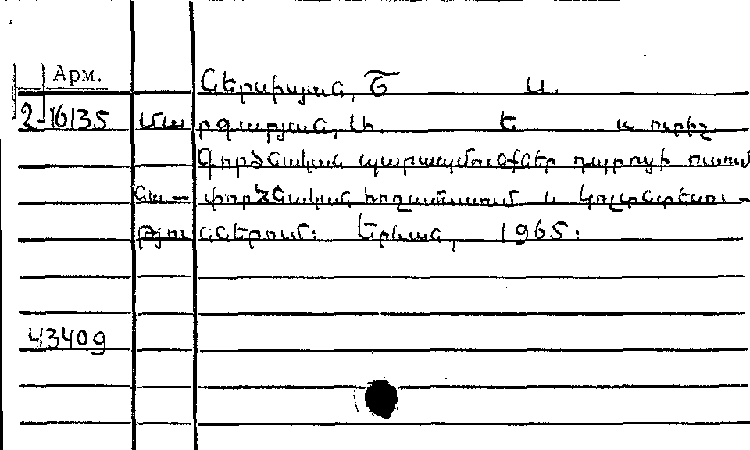 Арм.
Ներսիսյան, Շ Ա.
2-16135 Մարգարյան, Ա. Ե. և ուրիշ
Գործնական պարապմունքներ դպրոցի ուսում
նա- փորձնական հողամասում և կոլտնտեսու-
թյուններում: Երևան, 1965:
43409